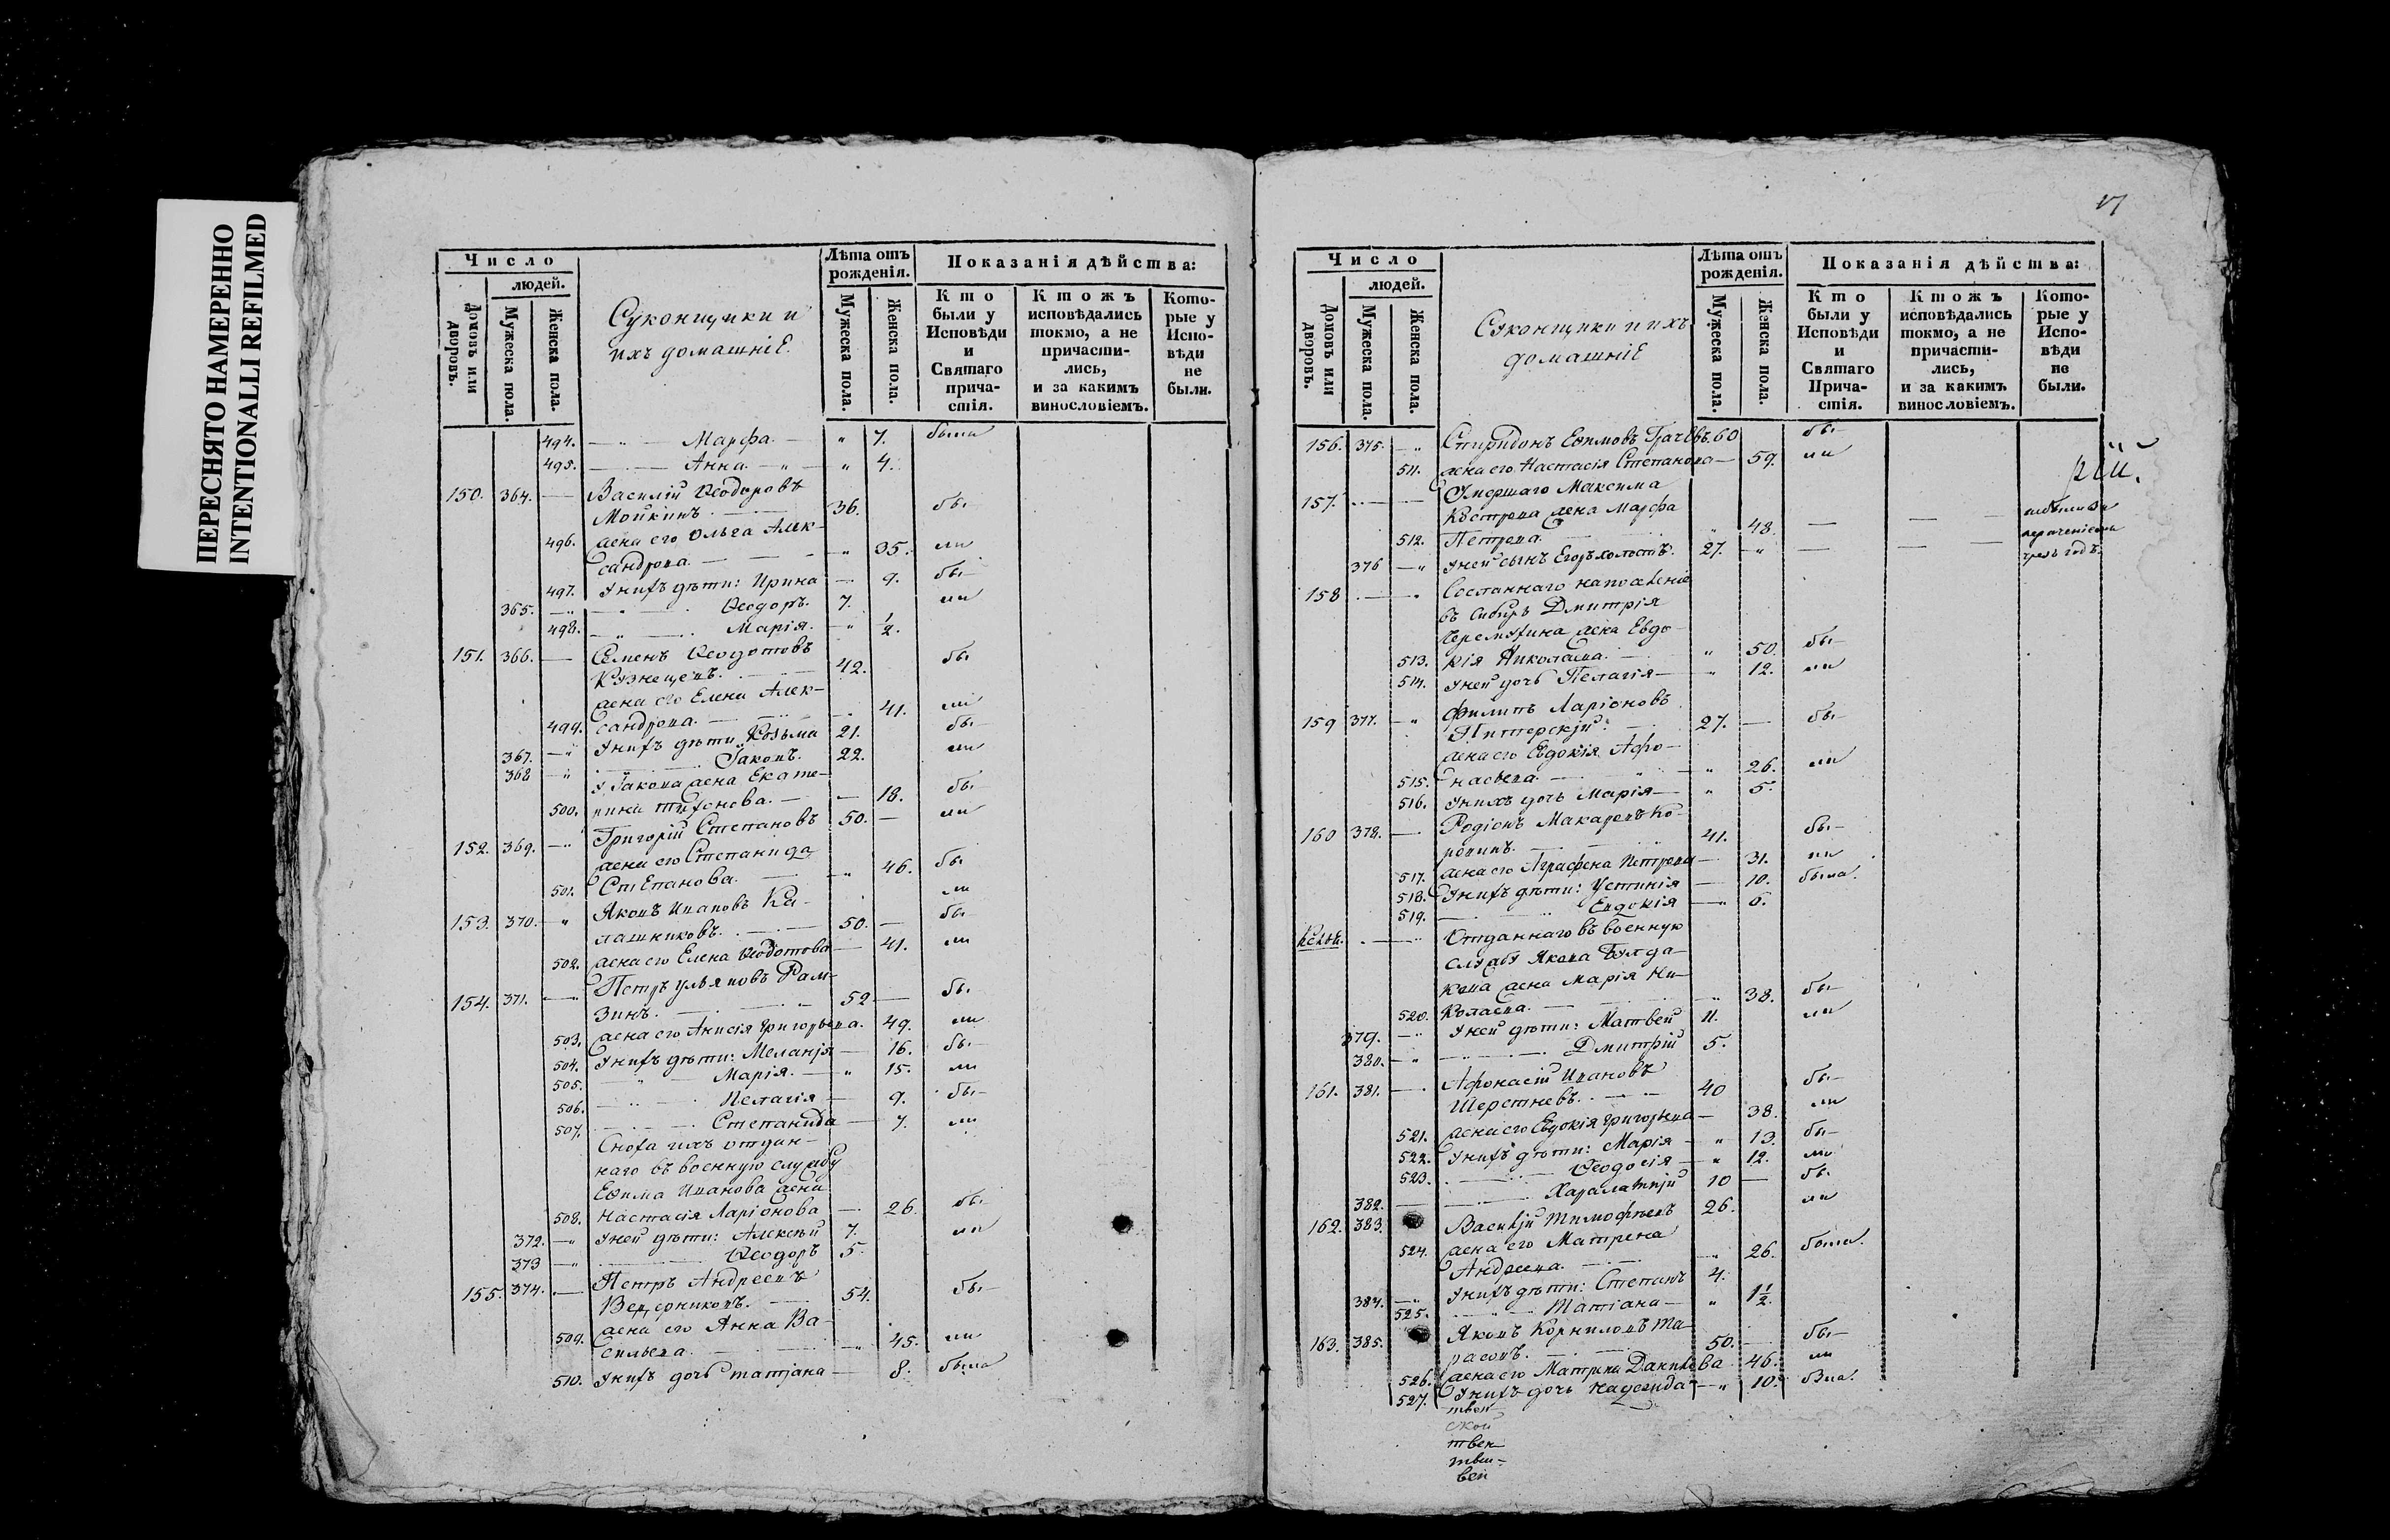 ПЕРЕСНЯТО НАМЕРЕННО
INTENTIONALLI REFILMED
Число
людей.
Домовъ или дворовъ.
Мужеска пола.
Женска пола.
Суконщики и
ихъ домашніе.
Лѣта отъ рожденія.
Мужеска пола.
Женска пола.
Показанія дѣйства:
Кто были у Исповѣди и Святаго причастія.
Ктожъ исповѣдались токмо, а не причастились, и за какимъ винословіемъ.
Которые у Исповѣди не были.
494. — " — Марфа. — " 7. была
495. — Анна. — " — " 4.
150. 364. — Василій Ѳеодоровъ
Мойкинъ. 36. бы-
496. жена его Ольга Алек-
сандрова. — " 35. ли
497. У нихъ дѣти: Ирина — 9. бы-
365. — " — Ѳеодоръ. 7. ли
498. — " — Марія. — " ½.
151. 366. — Семенъ Ѳеодотовъ
Кузнецовъ. 42. бы
жена его Елена Алек-
499. сандрова. — 41. ли
367. — " У нихъ дѣти Козьма 21. бы-
368 — " Іаковъ. 22. ли
у Іакова жена Екате-
500. рина Тихонова. — 18. бы-
152. 369. — " Григорій Степановъ 50. — ли
жена его Степанида
501. Степанова. — " 46. бы
ли
153. 370. — " Яковъ Ивановъ Ка-
лашниковъ. 50. — бы
502. жена его Елена Ѳеодотова — 41. ли
154. 371. — " Петръ Ульяновъ Рам-
зинъ. 52 — бы.
503. жена его Анисія Григорьева. 49. ли
504. У нихъ дѣти: Меланія — 16. бы-
505. — " — Марія. — " 15. ли
506. — Пелагія — 9. бы-
507. — Степанида — 7. ли
Сноха ихъ отдан-
наго въ военную службу
Ефима Иванова жена
508. Настасія Ларіонова — 26. бы-
372. — " У ней дѣти: Алексѣй 7. ли
373 — " Ѳеодоръ 5.
155. 374. — Петръ Андреевъ
Ведерниковъ. 54. бы-
509. жена его Анна Ва-
сильева. — " 45. ли
510. У нихъ дочь Татіана — 8. была
17
Число
людей.
Домовъ или дворовъ.
Мужеска пола.
Женска пола.
Суконщики и ихъ
домашніе
Лѣта отъ рожденія.
Мужеска пола.
Женска пола.
Показанія дѣйства:
Кто были у Исповѣди и Святаго Причастія.
Ктожъ исповѣдались токмо, а не причастились, и за какимъ винословіемъ.
Которые у Исповѣди не были.
156. 375. — " Спиридонъ Ефимовъ Грачевъ. 60 бы-
511. жена его Настасія Степанова — 59. ли
рій.
157. — Умершаго Максима
Кострова жена Марфа
512. Петрова. " 48. —
376 — " У ней сынъ Егоръ холостъ. 27. — " —
трехъ годъ.
158 — " Сосланнаго на поселеніе
въ Сибирь Дмитрія
Черемухина жена Евдо-
513. кія Николаева. " 50. бы-
514. У ней дочь Пелагія — " 12. ли
159 377. — " Филипъ Ларіоновъ
Питтерскій. 27. — бы-
жена его Евдокія Афо-
515. насьева. " 26. ли
516. У нихъ дочь Марія — " 5.
160 378. — Родіонъ Макаровъ Ко-
ровинъ. 41. бы-
517. жена его Аграфена Петрова — 31. ли
518. У нихъ дѣти: Устинія — 10. была.
519. — " Евдокія — " 6.
Отданнаго въ военную
службу Якова Булда-
кова жена Марія Ни-
520. колаева. — " 38. бы-
379. — " У ней дѣти: Матвей 11. ли
380. — " — Дмитрій 5.
161. 381. — Афонасій Ивановъ
Шерстневъ. 40 бы-
521. жена его Евдокія Григорьева — 38. ли
522. У нихъ дѣти: Марія — " 13. бы-
523. — Ѳеодосія — " 12. ли
382. — Харалампій 10 — бы.
162. 383. Василій Тимофѣевъ 26. ли
524. жена его Матрена
Андреева. " 26. была.
384. — " У нихъ дѣти: Степанъ 4.
525. — " — Татіана — " 1½.
163. 385. Яковъ Корниловъ Та-
расовъ. 50. — бы-
526. жена его Матрена Данилова 46. ли
527. У нихъ дочь Надежда — " 10.
твен
ской
твен-
вей